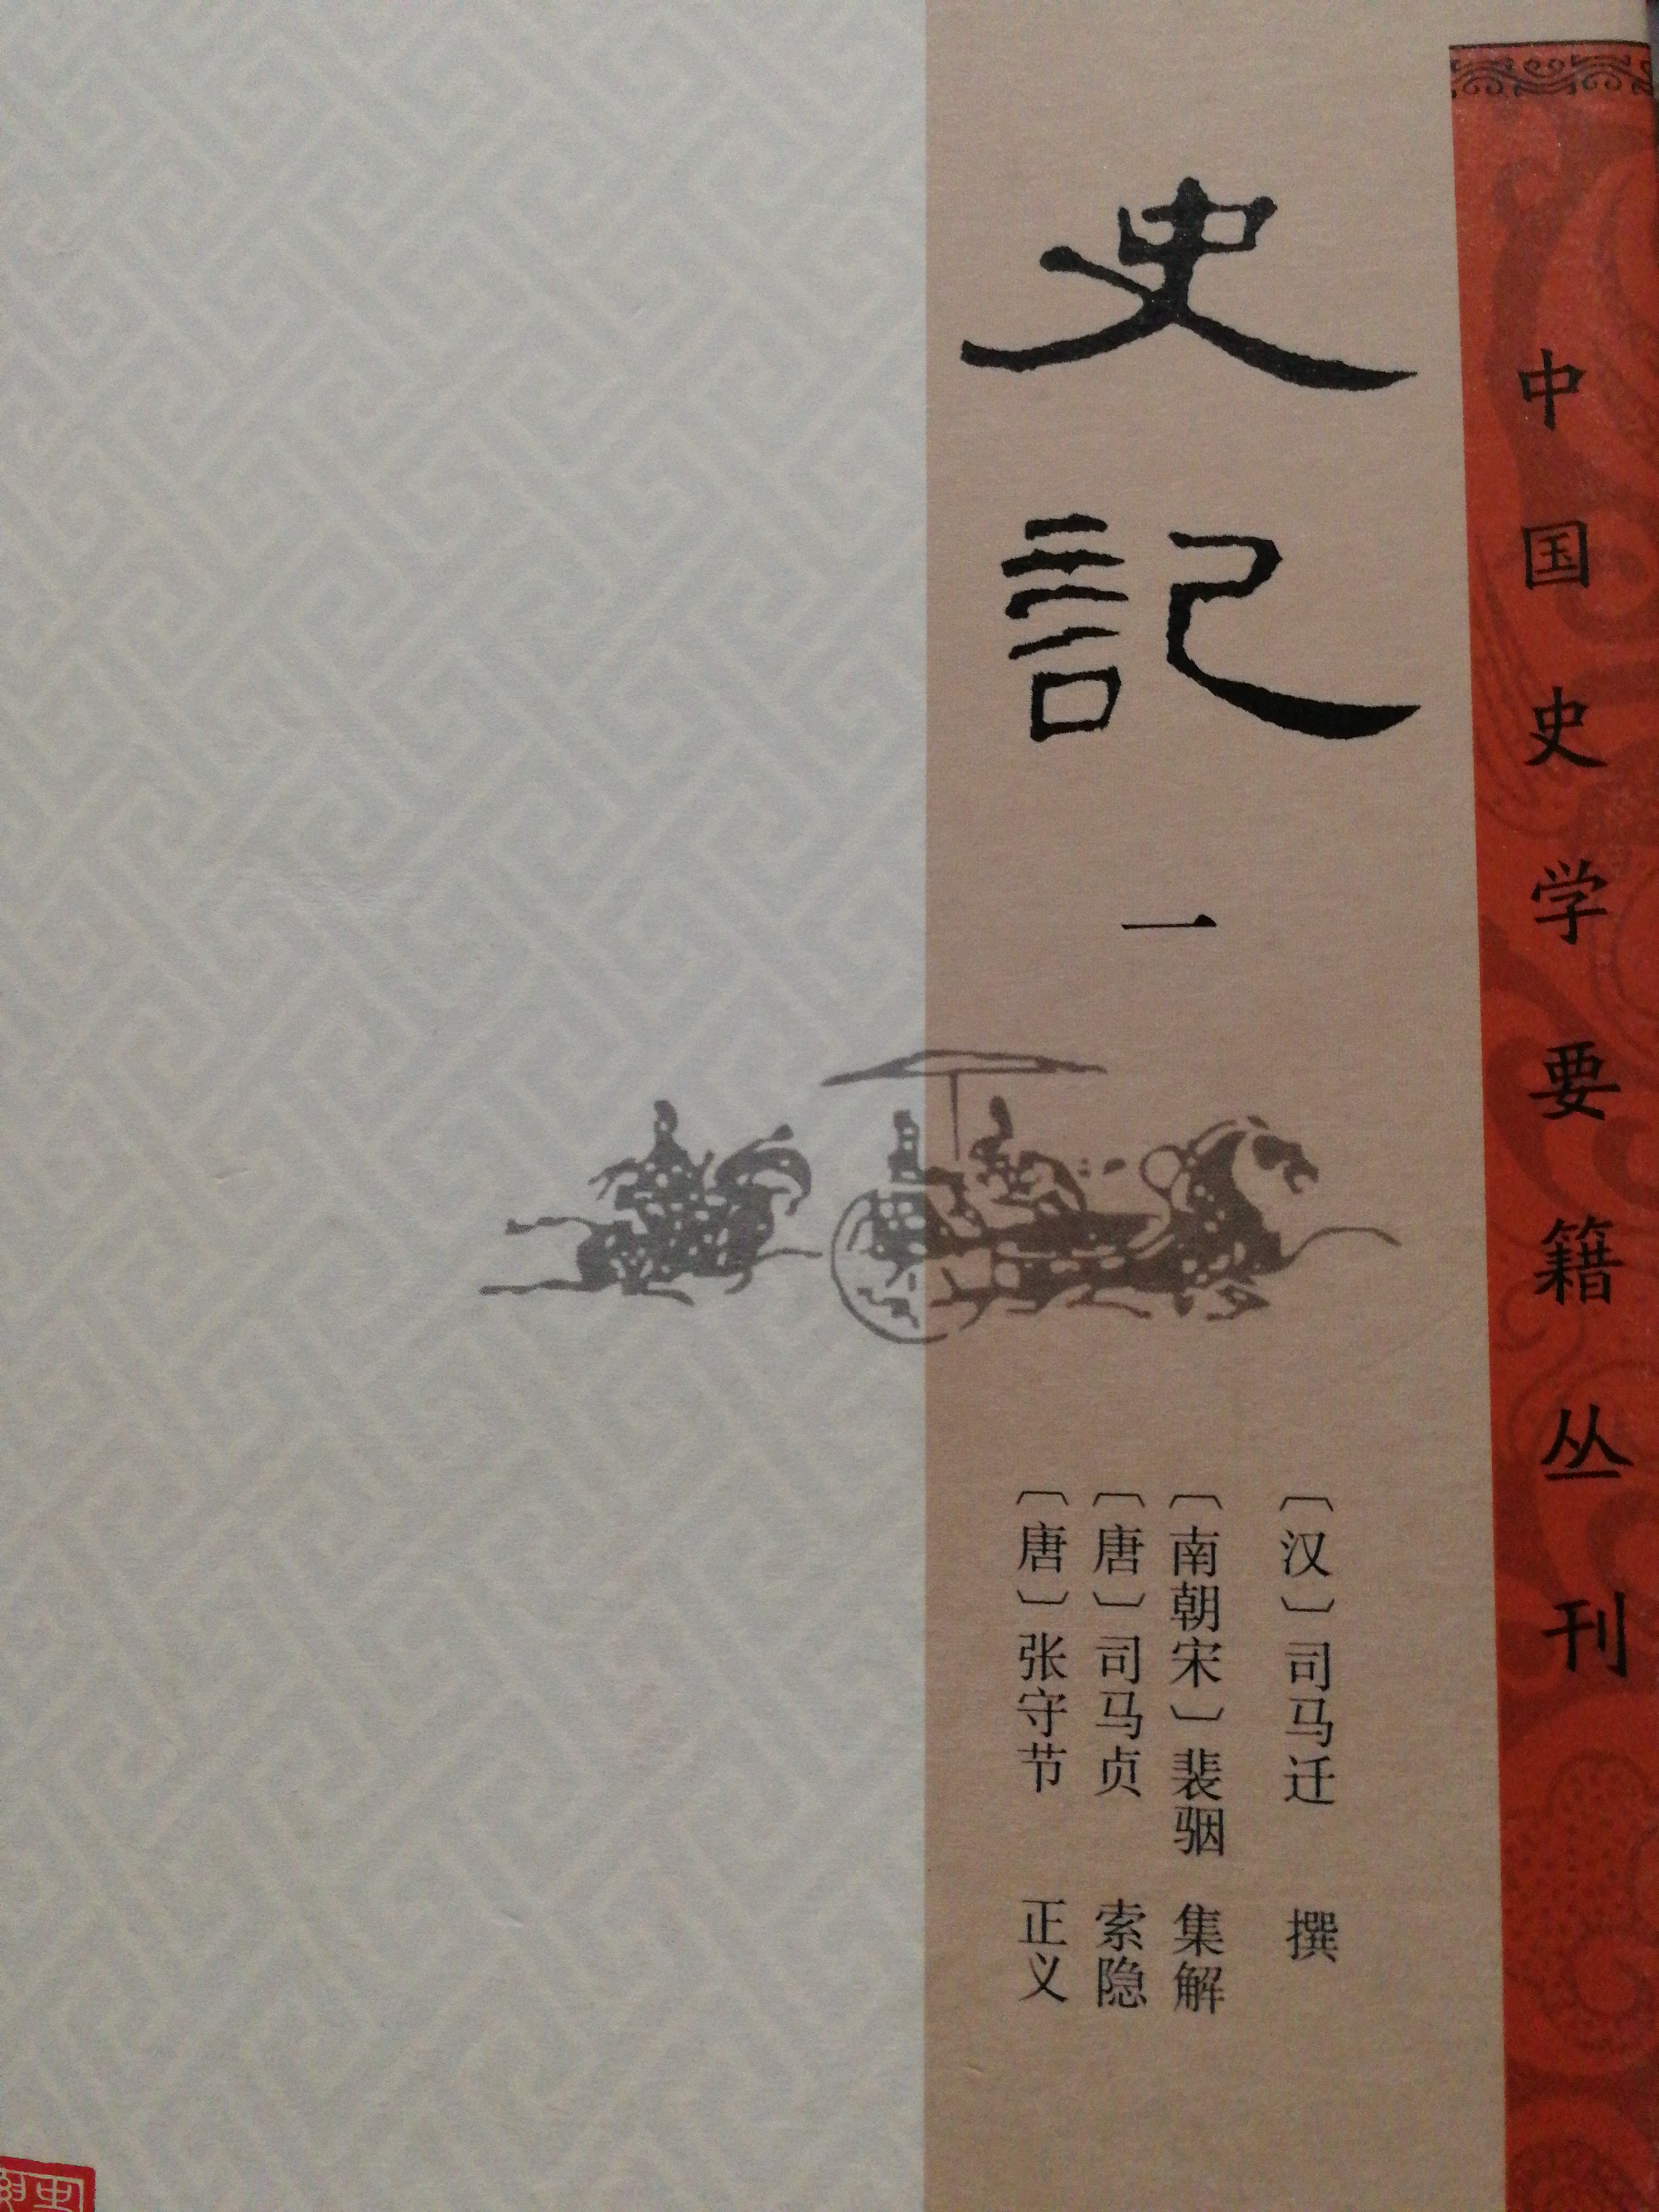 中国史学要籍丛刊
史記
一
〔汉〕司马迁 撰
〔南朝宋〕裴骃 集解
〔唐〕司马贞 索隐
〔唐〕张守节 正义